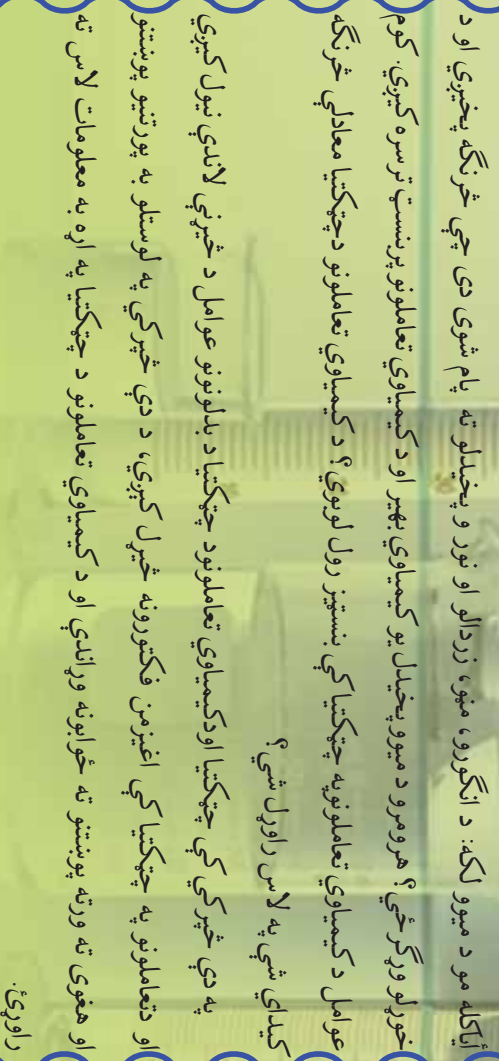 آیاکله مو د میوو لکه: د انگورو، منو، زردالو او نور و پخیدلو ته پام شوی دی چې څرنگه پخیږي او د
خوړلو وړگرځي؟ هرومرو د میوو پخیدل یو کیمیاوي بهیر او د کیمیاوي تعاملونو پرنسټ تر سره کیږي. کوم
عوامل د کیمیاوي تعاملونو په چټکتیا کې بنسټیز رول لوبوي؟ د کیمیاوي تعاملونو دچټکتیا معادلې څرنگه
کیدای شي په لاس راوړل شي؟
په دې څپرکې کې چټکتیا اودکیمیاوي تعاملونود چټکتیا د بدلونونو عوامل د څیړنې لاندې نیول کیږي
او دتعاملونو په چټکتیا کې اغیزمن فکتورونه څیړل کیږي، د دې څپرکي په لوستلو به پورتنیو پوښتنو
او هغوی ته ورته پوښتنو ته ځوابونه وړاندې او د کیمیاوي تعاملونو د چټکتیا په اړه به معلومات لاس ته
راوړئ.